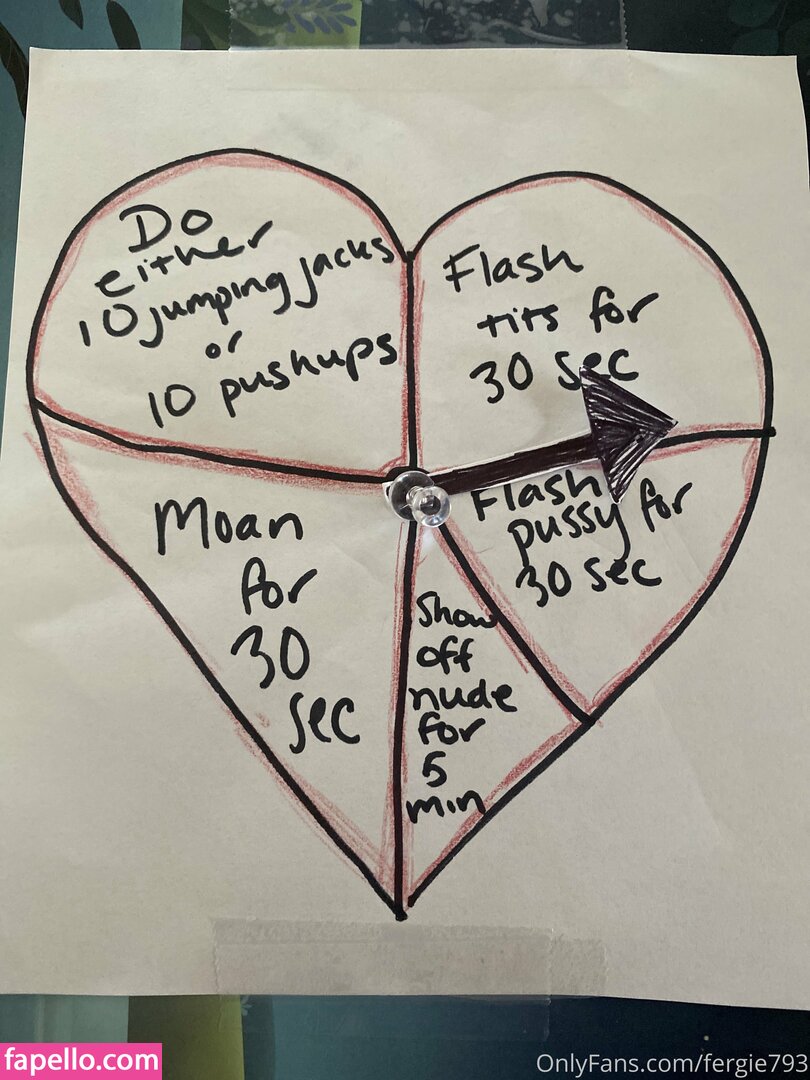 Do
either
10 jumping jacks
or
10 pushups
Flash
tits for
30 sec
Flash
pussy for
30 sec
Show
off
nude
for
5
min
Moan
for
30
sec
fapello.com
OnlyFans.com/fergie793